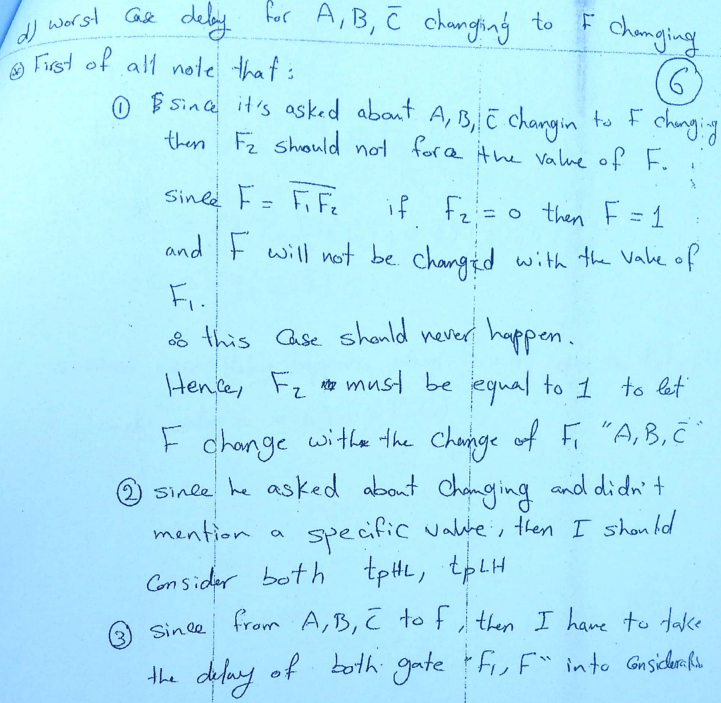 d) worst Case delay for A, B, C̅ changing to F changing
⊛ First of all note that :
⑥
① since it's asked about A, B, C̅ changin to F changing
then F₂ should not force the value of F.
since F = \overline{F₁ F₂} if F₂ = 0 then F = 1
and F will not be changed with the value of
F₁.
∴ this Case should never happen.
Hence, F₂ must be equal to 1 to let
F change with the change of F₁ "A, B, C̅"
② since he asked about Changing and didn't
mention a specific value, then I should
Consider both tpHL, tpLH
③ since from A, B, C̅ to F, then I have to take
the delay of both gate "F₁, F" into